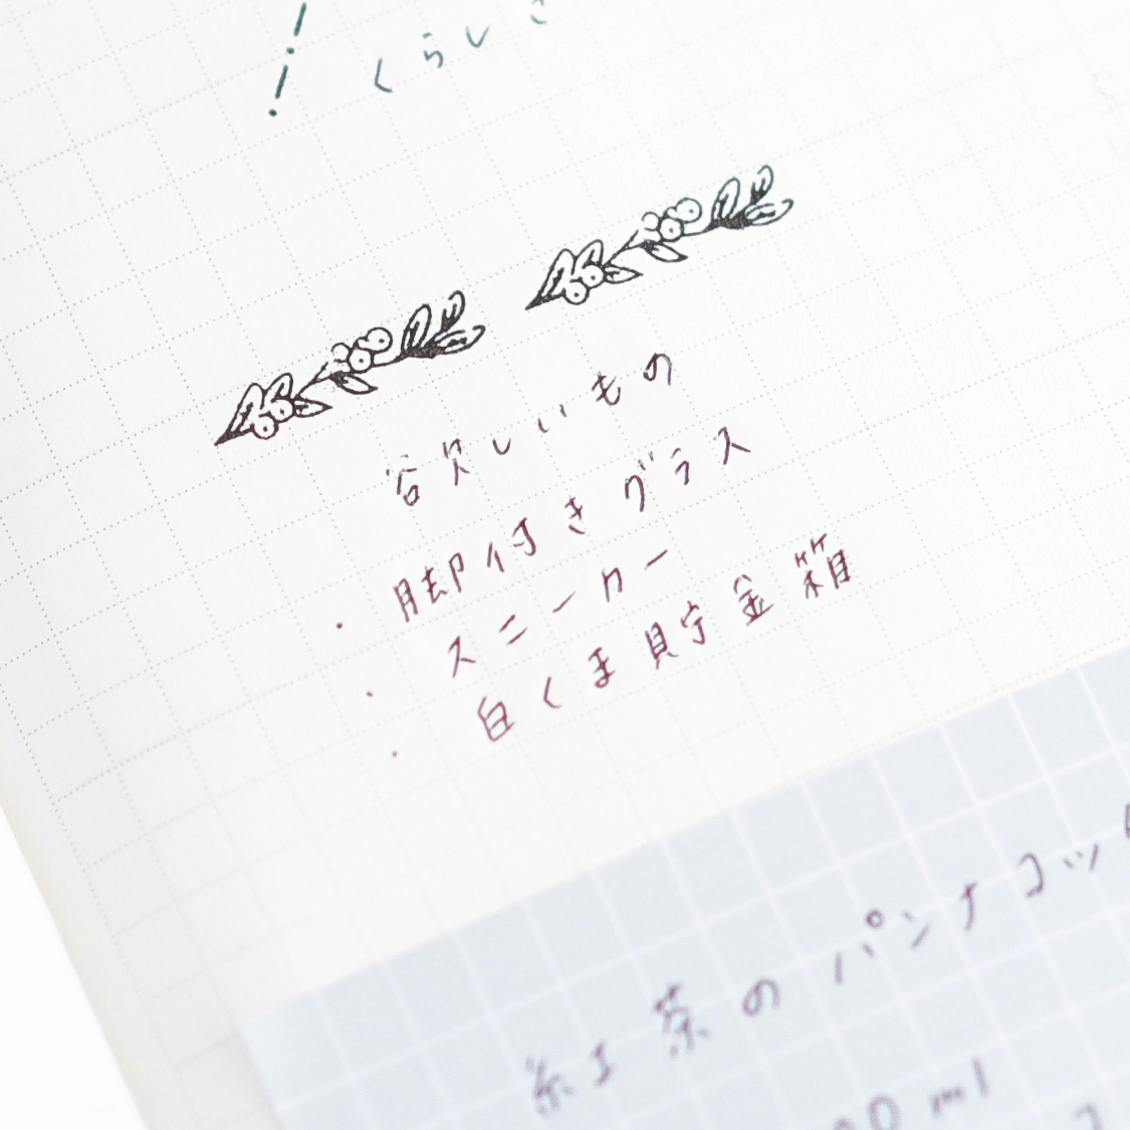 くらしき
欲しいもの
・脚付きグラス
・スニーカー
・白くま貯金箱
紅茶のパンナコッ
00ml